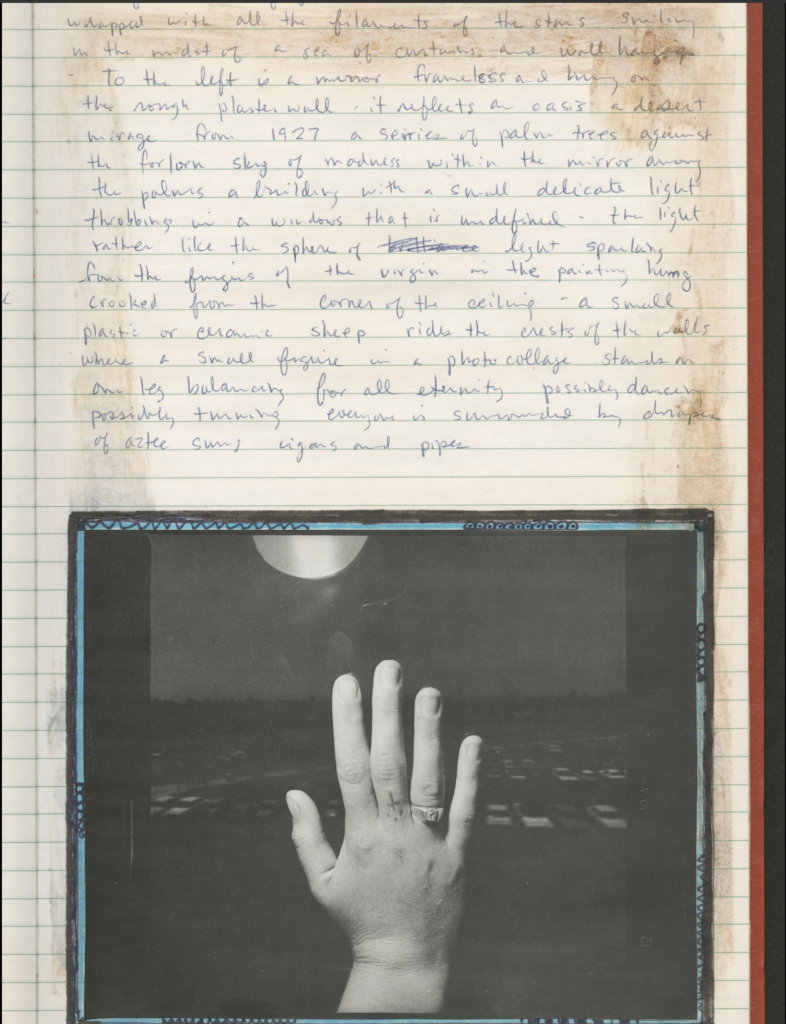 wrapped with all the filaments of the stars smiling
in the midst of a sea of curtains and wall hangings
- To the left is a mirror frameless and hung on
the rough plaster wall - it reflects an oasis a desert
mirage from 1927 a serries of palm trees against
the forlorn sky of madness within the mirror among
the palms a building with a small delicate light
throbbing in a windows that is undefined - the light
rather like the sphere of brilliance light sparking
from the fingers of the virgin in the painting hung
crooked from the corner of the ceiling - a small
plastic or ceramic sheep rides the crests of the walls
where a small figure in a photo collage stands on
one leg balancing for all eternity possibly dancing
possibly turning everyone is surrounded by drapes
of aztec suns cigars and pipes